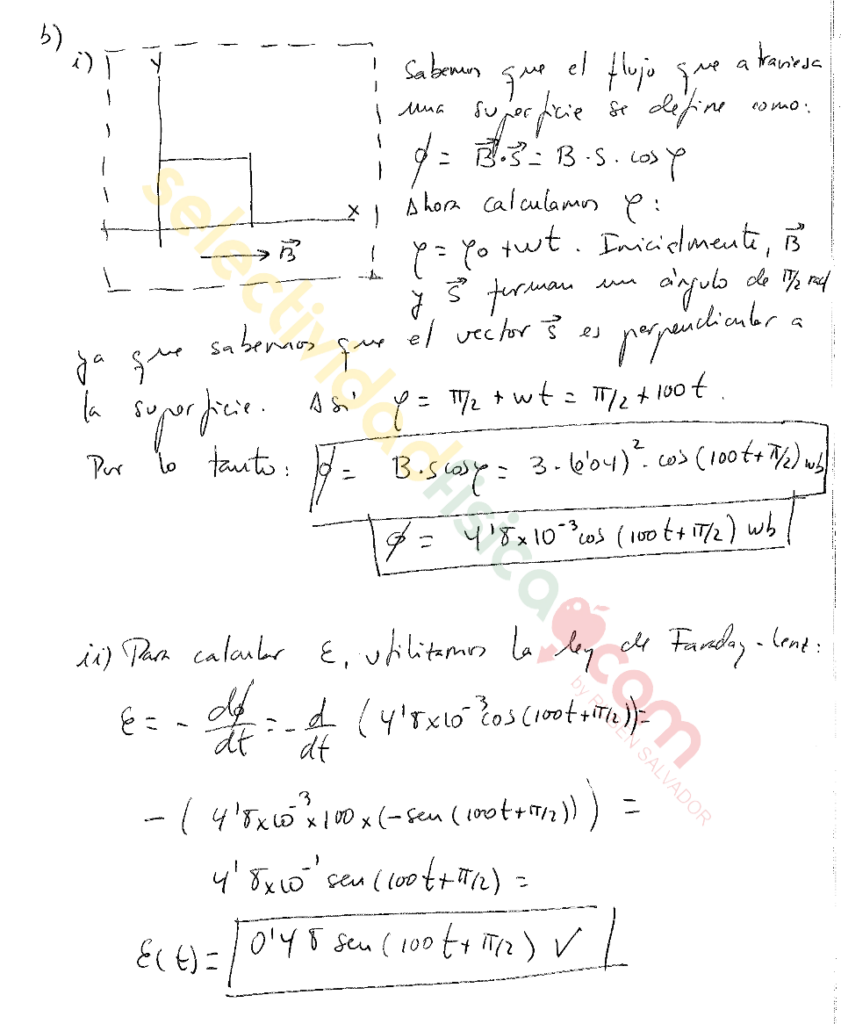 b)
i)
y
x
B⃗
Sabemos que el flujo que atraviesa
una superficie se define como:
ϕ = B⃗·S⃗ = B·S·cosφ
Ahora calculamos φ:
φ = φ0 + wt. Inicialmente, B⃗
y S⃗ forman un ángulo de π/2 rad
ya que sabemos que el vector S⃗ es perpendicular a
la superficie. Así φ = π/2 + wt = π/2 + 100t.
Por lo tanto: ϕ = B·S cosφ = 3·(0'04)²·cos(100t+π/2) wb
ϕ = 4'8x10⁻³cos(100t+π/2) wb
ii) Para calcular ε, utilizamos la ley de Faraday-Lenz:
ε = - dϕ/dt = - d/dt (4'8x10⁻³cos(100t+π/2))=
-(4'8x10⁻³x100x(-sen(100t+π/2))) =
4'8x10⁻¹sen(100t+π/2) =
ε(t) = 0'48 sen(100t+π/2) V
selectividadfisica.com
by RUBEN SALVADOR